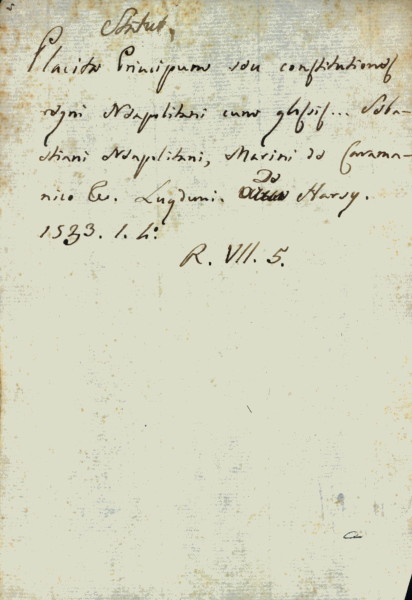 Statut.
Placita Principum seu constitutiones
regni Neapolitani cum glossis... Seba-
stiani Neapolitani, Marini de Carama-
nico Lugduni. De Harsy.
1533. 1. 4o.
R. VII. 5.